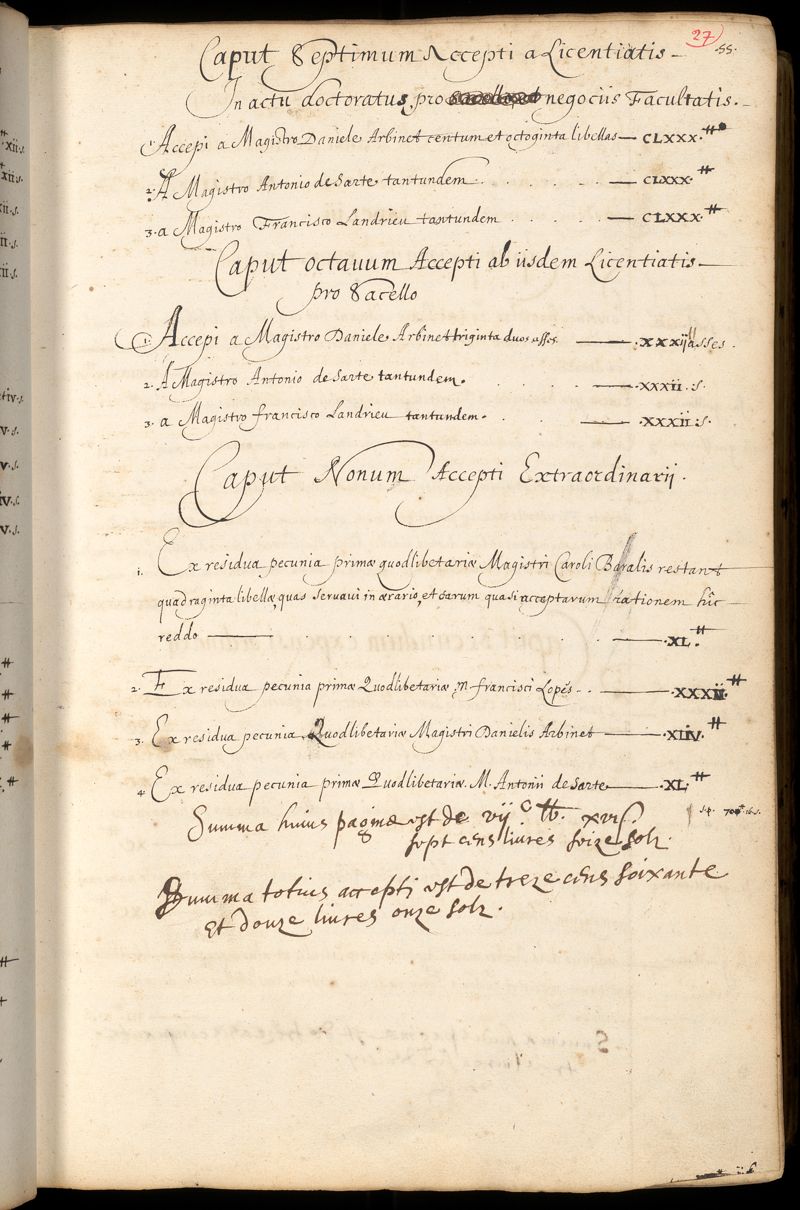 27
55.
Caput Septimum Accepti a Licentiatis
In actu doctoratus, pro negociis Facultatis.
1. Accepi a Magistro Daniele Arbinet centum et octoginta libellas — CLXXX ⁜
2. A Magistro Antonio de Sarte tantundem . . . . — CLXXX ⁜
3. a Magistro Francisco Landrieu tantundem . . . . — CLXXX ⁜
Caput octauum Accepti ab iisdem Licentiatis
pro Sacello
1. Accepi a Magistro Daniele Arbinet triginta duos asses. — xxxii asses.
2. A Magistro Antonio de Sarte tantundem. . . — xxxii. s.
3. a Magistro francisco Landrieu tantundem. . — xxxii. s.
Caput Nonum Accepti Extraordinarij.
1. Ex residua pecunia primæ quodlibetariæ Magistri Caroli Baralis restant
quadraginta libellæ, quas servavi in ærario, et earum quasi acceptarum rationem hîc
reddo — . . . — XL. ⁜
2. Ex residua pecunia primæ Quodlibetariæ M francisci Lopés . . — XXXII. ⁜
3. Ex residua pecunia Quodlibetariæ Magistri Danielis Arbinet — XLIV. ⁜
4. Ex residua pecunia primæ Quodlibetariæ. M. Antonii de Sarte — XL. ⁜
Summa huius paginæ est de vij c lt. xvi s.
704 16 s.
sept cens livres seize solz.
Summa totius accepti est de treze cens soixante
et douze livres onze solz.